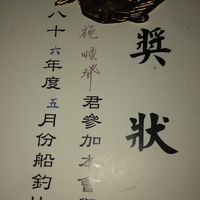 獎狀
施順
君參加本會
八十六年度五月份船釣